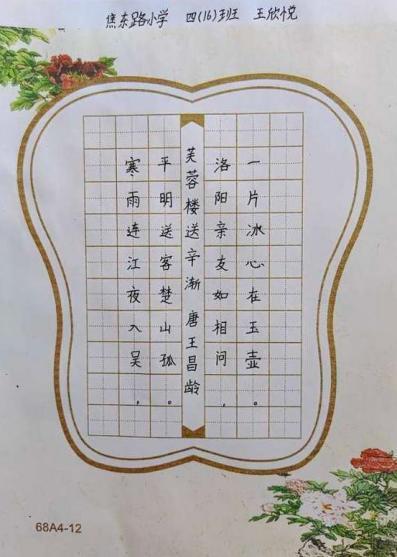 焦东路小学 四(16)班 王欣悦
寒雨连江夜入吴，
平明送客楚山孤。
芙蓉楼送辛渐 唐王昌龄
洛阳亲友如相问，
一片冰心在玉壶。
68A4-12